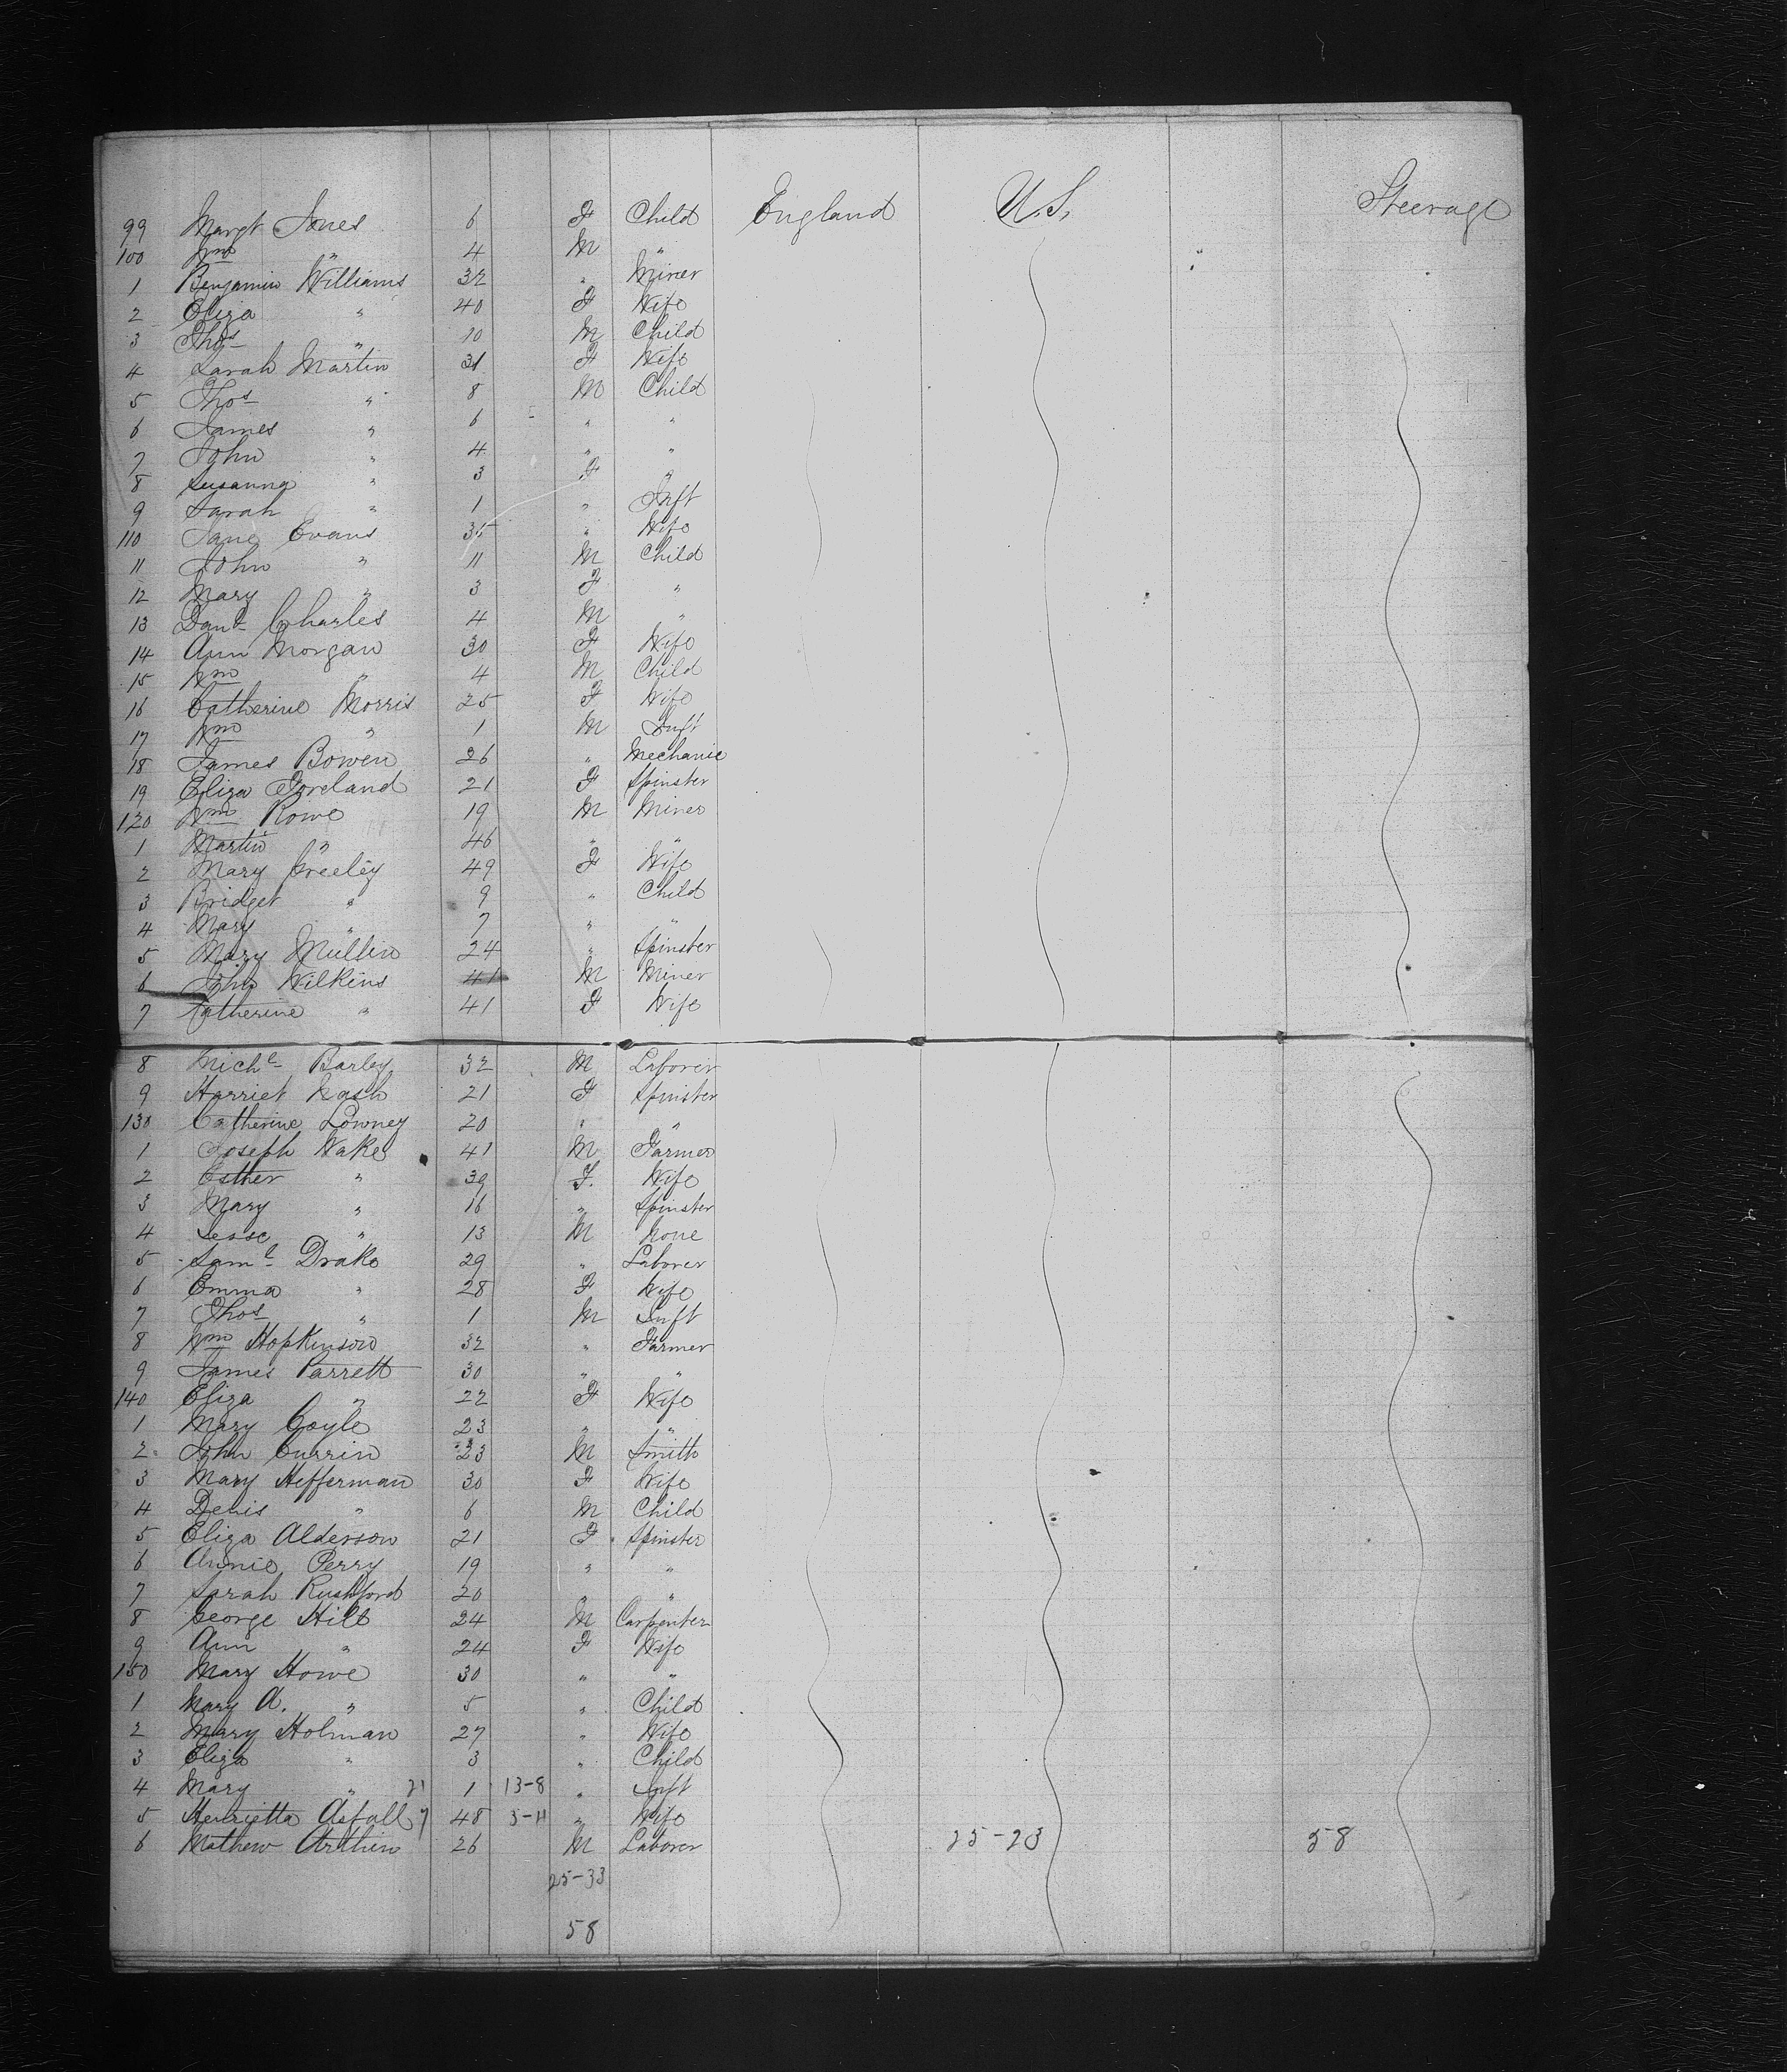 99 Margt Jones 6 F Child England U.S. Steerage
100 Wm " 4 M "
1 Benjamin Williams 32 " Miner
2 Eliza " 40 F Wife
3 Thos " 10 M Child
4 Sarah Martin 31 F Wife
5 Thos " 8 M Child
6 James " 6 " "
7 John " 4 " "
8 Susanna " 3 F "
9 Sarah " 1 " Inft
110 Jane Evans 35 " Wife
11 John " 11 M Child
12 Mary " 3 F "
13 Danl Charles 4 M "
14 Ann Morgan 30 F Wife
15 Wm " 4 M Child
16 Catherine Morris 25 F Wife
17 Wm " 1 M Inft
18 James Bowen 26 " Mechanic
19 Eliza 21 F Spinster
120 Wm Rowe 19 M Miner
1 Martin " 46 " "
2 Mary Greeley 49 F Wife
3 Bridget " 9 " Child
4 Mary " 7 " "
5 Mary Mullin 24 " Spinster
6 John Wilkins 41 M Miner
7 Catherine " 41 F Wife
8 Michl Barley 32 M Laborer
9 Harriet Nash 21 F Spinster
130 Catherine Lowney 20 " "
1 Joseph Wake 41 M Farmer
2 Esther " 39 F. Wife
3 Mary " 16 " Spinster
4 Jesse " 13 M None
5 Saml Drake 29 " Laborer
6 Emma " 28 F Wife
7 Thos " 1 M Inft
8 Wm Hopkinson 32 " Farmer
9 James Parrett 30 " "
140 Eliza " 22 F Wife
1 Mary Coyle 23 " "
2 John Currin 23 M Smith
3 Mary Hefferman 30 F Wife
4 Denis " 6 M Child
5 Eliza Alderson 21 F Spinster
6 Annie Perry 19 " "
7 Sarah Rushford 20 " "
8 George Hill 24 M Carpenter
9 Ann " 24 F Wife
150 Mary Howe 30 " "
1 Mary A. " 5 " Child
2 Mary Holman 27 " Wife
3 Eliza " 3 " Child
4 Mary " 21 1 13-8 " Inft
5 Henrietta 7 48 3-11 " Wife
6 Mathew 26 M Laborer 25-23 58
25-33
58